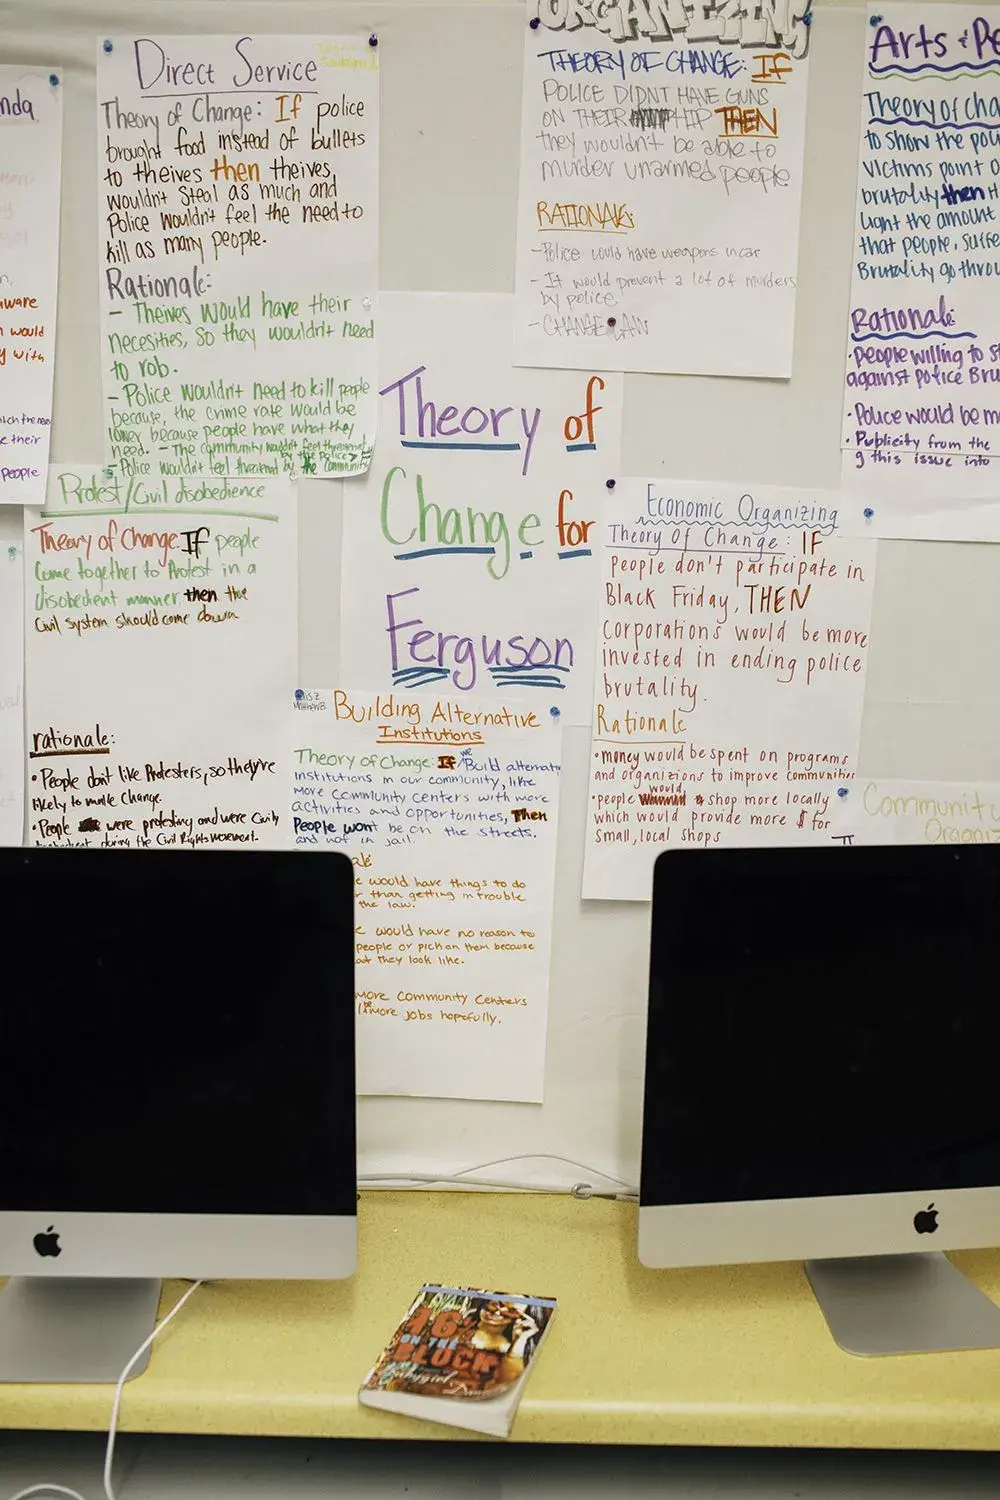 nda
ware
would
y with
e their
people
Direct Service
Theory of Change: If police
brought food instead of bullets
to theives then theives,
wouldn't steal as much and
Police wouldn't feel the need to
kill as many people.
Rationale:
- Theives would have their
necesities, so they wouldn't need
to rob.
- Police wouldn't need to kill people
because, the crime rate would be
lower because people have what they
need. - The community wouldn't feel threatened
by the Police>
- Police wouldn't feel threatend by the community
ORGANIZING
THEORY OF CHANGE: IF
POLICE DIDNT HAVE GUNS
ON THEIR HIP THEN
they wouldn't be able to
murder unarmed people
RATIONALE:
- Police could have weapons in car
- It would prevent a lot of murders
by police.
- CHANGE LAW
Arts + Pe
Theory of cha
to show the poli
victims point o
brutality then
light the amount
that people, suffe
Brutality go throu
Rationale:
• people willing to s
against police Bru
• Police would be m
• Publicity from the
g this issue into
Theory of
Change for
Ferguson
Protest/Civil disobedience
Theory of Change: If people
Come together to Protest in a
disobedient manner then the
Civil system should come down
rationale:
• People don't like Protesters, so they're
likely to make Change.
• People were protesting and were Civily
during the Civil Rights movement.
Economic Organizing
Theory Of Change: IF
People don't participate in
Black Friday, THEN
Corporations would be more
invested in ending police
brutality.
Rationale
• money would be spent on programs
and organizions to improve communities
• people would shop more locally
which would provide more $ for
small, local shops
Building Alternative
Institutions
Theory of Change: If we Build alternativ
institutions in our community, like
more community centers with more
activities and opportunities, Then
People wont be on the streets.
and not in jail.
ale:
e would have things to do
r than getting in trouble
the law.
e would have no reason to
people or pick on them because
at they look like.
more community centers
be more jobs hopefully.
Community
Organiz
16
ON THE
BLOCK